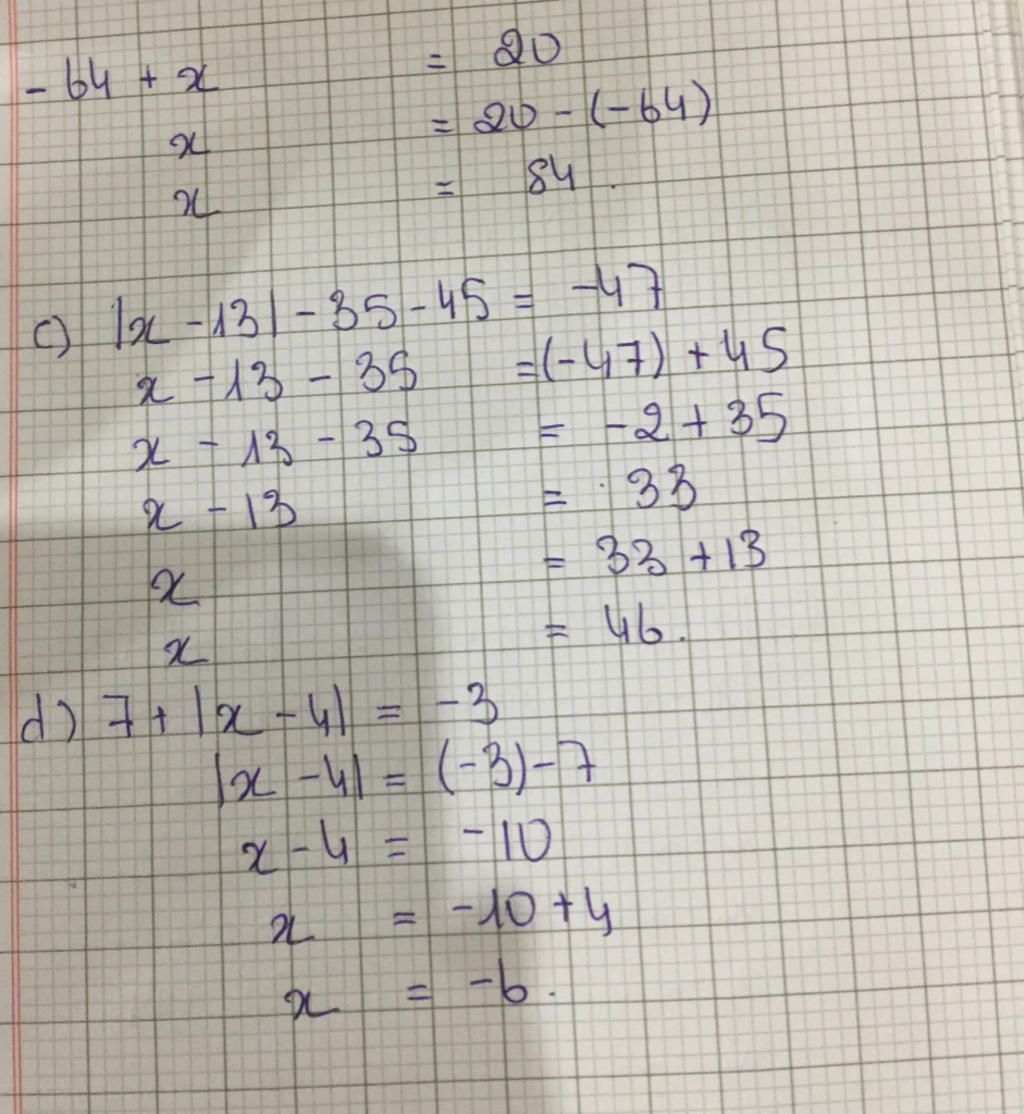 - 64 + x = 20
x = 20 - (-64)
x = 84.
c) |x - 13| - 35 - 45 = -47
x - 13 - 35 = (-47) + 45
x - 13 - 35 = -2 + 35
x - 13 = 33
x = 33 + 13
x = 46.
d) 7 + |x - 4| = -3
|x - 4| = (-3) - 7
x - 4 = -10
x = -10 + 4
x = -6.